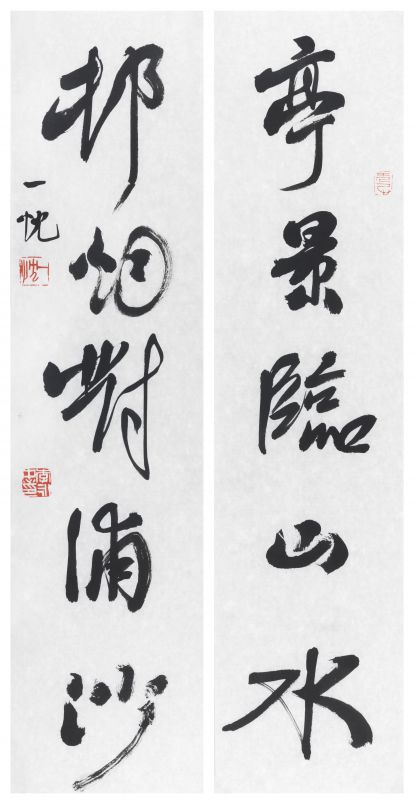 亭景臨山水
邨烟對浦沙
一忱